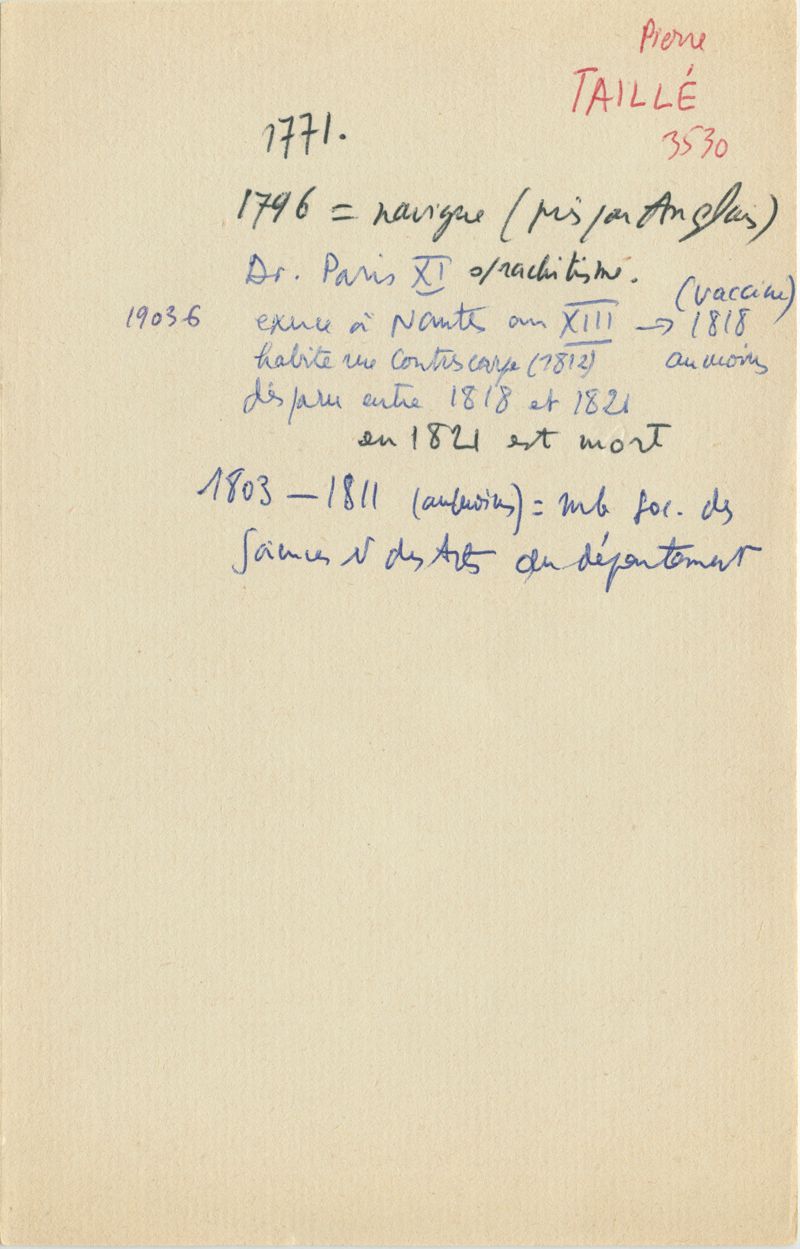 Pierre
TAILLÉ
3530
1771.
1796 = navigue (pris par Anglais)
Dr. Paris XI s/rachitisme.
(vaccine)
19036 exerce à Nantes an XIII → 1818
habite rue Contrescarpe (1812) au moins
disparu entre 1818 et 1821
en 1821 est mort
1803 – 1811 (au moins) = mb Soc. des
Sciences et des Arts du département